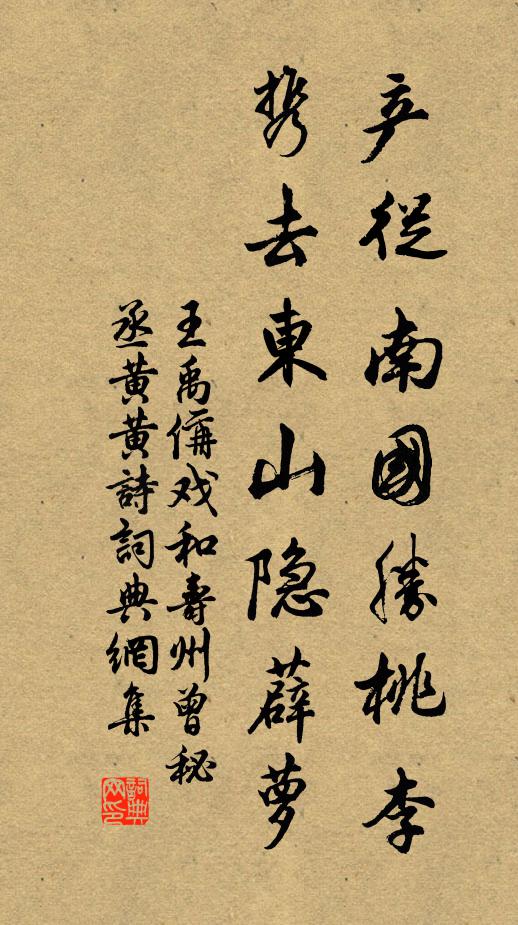 产從南國勝桃李
携去東山隐薜萝
王禹偁戏和壽州曾秘
丞黄黄詩詞典網集
詞典网印